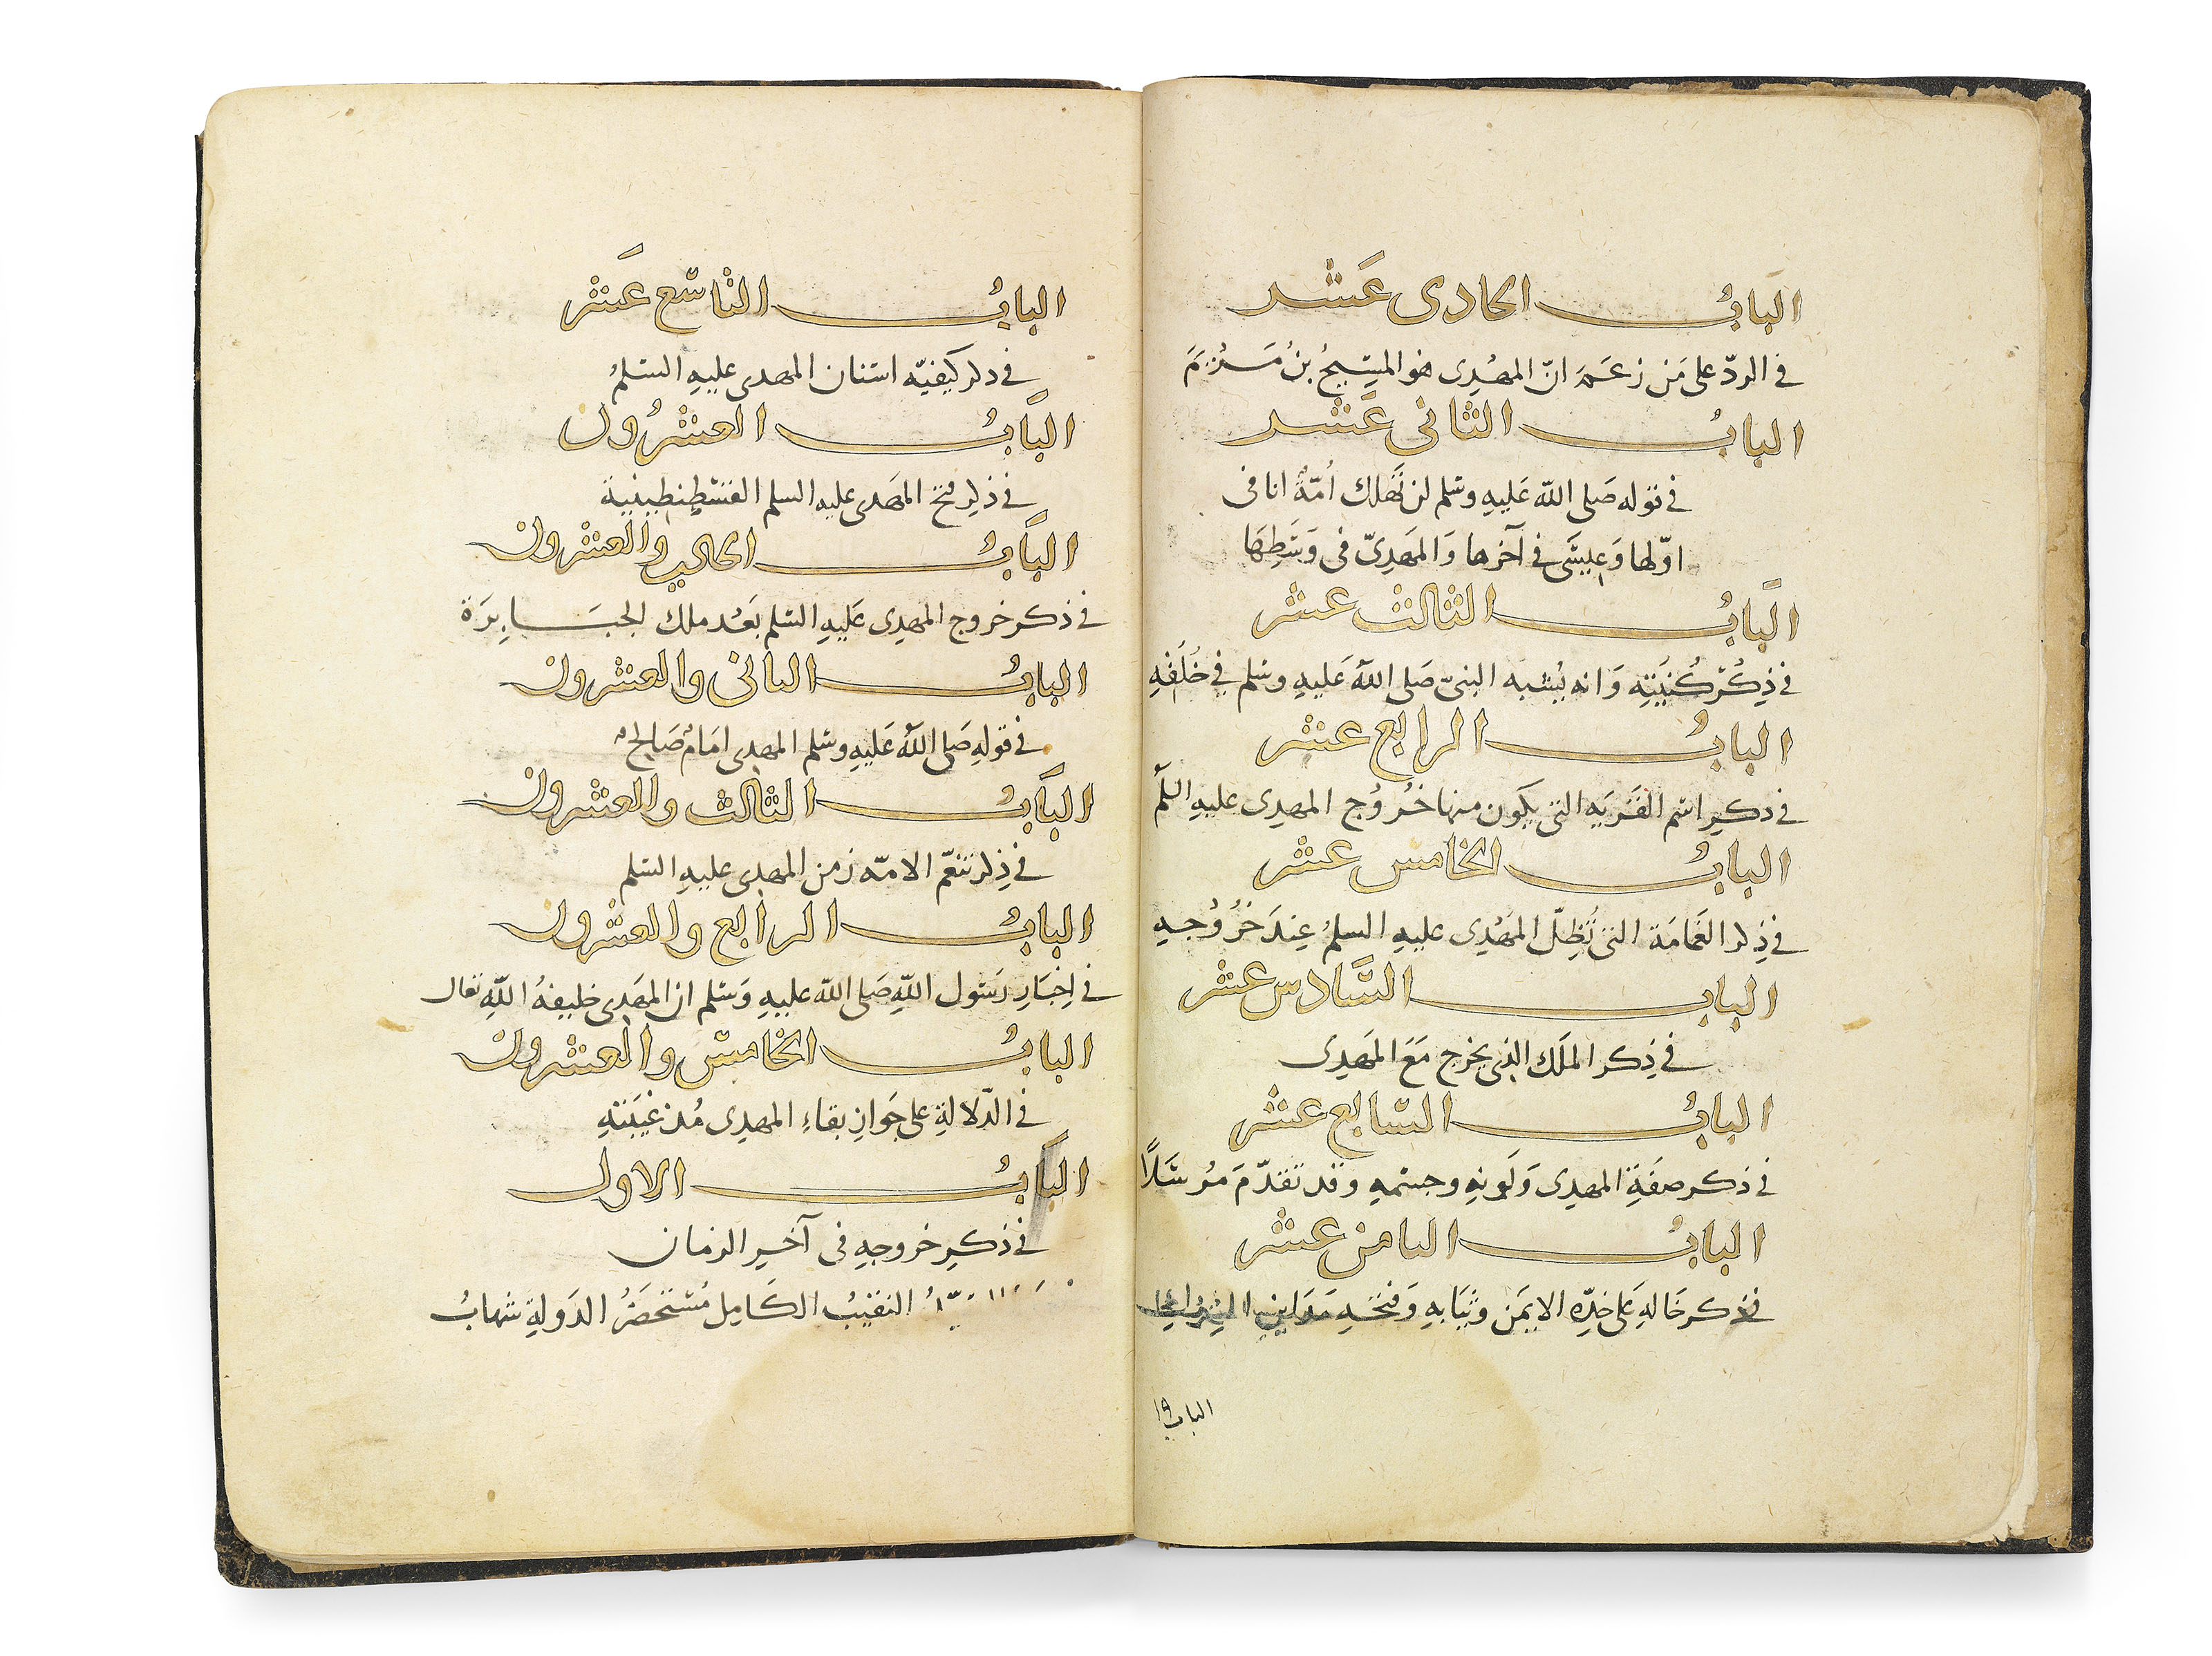 الباب الحادى عشر
فى الردّ على من زعم انّ المهدى هو المسيح بن مريم
الباب الثانى عشر
فى قوله صلى الله عليه وسلم لن تهلك اُمّة انا فى
اوّلها وعيسى فى آخرها والمهدىّ فى وسطها
الباب الثالث عشر
فى ذكر كنيته وانه يشبه النبىّ صلى الله عليه وسلم فى خلقه
الباب الرابع عشر
فى ذكر اسم القريه التى يكون منها خروج المهدى عليه السلم
الباب الخامس عشر
فى ذكر الغمامة التى تُظلّ المهدى عليه السلم عند خروجه
الباب السّادس عشر
فى ذكر الملك الذى يخرج مع المهدى
الباب السابع عشر
فى ذكر صفة المهدى ولونه وجسمه وقد تقدّم مرسلاً
الباب الثامن عشر
فى ذكر خاله على خدّه الايمن وثيابه وفتحه مداين الشرك
الباب ١٩
الباب التاسع عشر
فى ذكر كيفيّه اسنان المهدى عليه السلم
الباب العشرون
فى ذكر فتح المهدى عليه السلم القسطنطينية
الباب الحادى والعشرون
فى ذكر خروج المهدى عليه السلم بعد ملك الجبابرة
الباب الثانى والعشرون
فى قوله صلى الله عليه وسلم المهدى امام صالح
الباب الثالث والعشرون
فى ذكر تنعّم الامّه زمن المهدى عليه السلم
الباب الرابع والعشرون
فى اخبار رسول الله صلى الله عليه وسلم ان المهدى خليفة الله تعال
الباب الخامس والعشرون
فى الدّلالة على جواز بقاء المهدى مُذ غيبته
الباب الاول
فى ذكر خروجه فى آخر الزمان
النقيب الكامل مستحضر الدولة شهاب